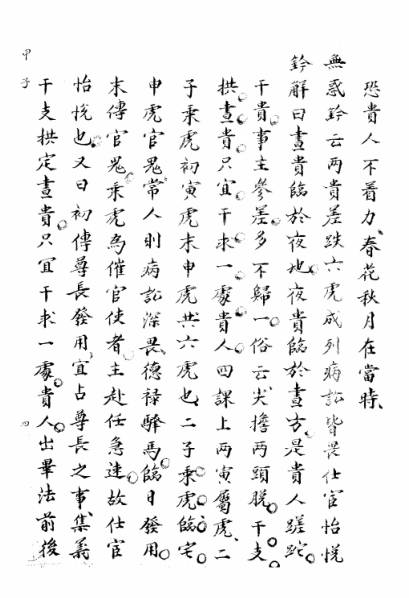 恐貴人不着力、春花秋月在當時、
無惑鈐云両貴差跌六虎成列病訟皆畏仕官怡悅
鈐解曰晝貴臨於夜也夜貴臨於晝方是貴人蹉跎
干貴事主參差多不歸一俗云尖擔両頭脫干支
拱晝貴只宜干求一處貴人四課上両寅屬虎二
子乘虎初寅虎末申虎共六虎也二子乘虎臨宅
申虎官鬼常人則病訟深畏德禄驛馬臨日發用
末傳官鬼乘虎為催官使者主赴任急速故仕官
怡悅也又曰初傳尊長發用宜占尊長之事集義
干支拱定晝貴只宜干求一處貴人出畢法前後
甲子
四